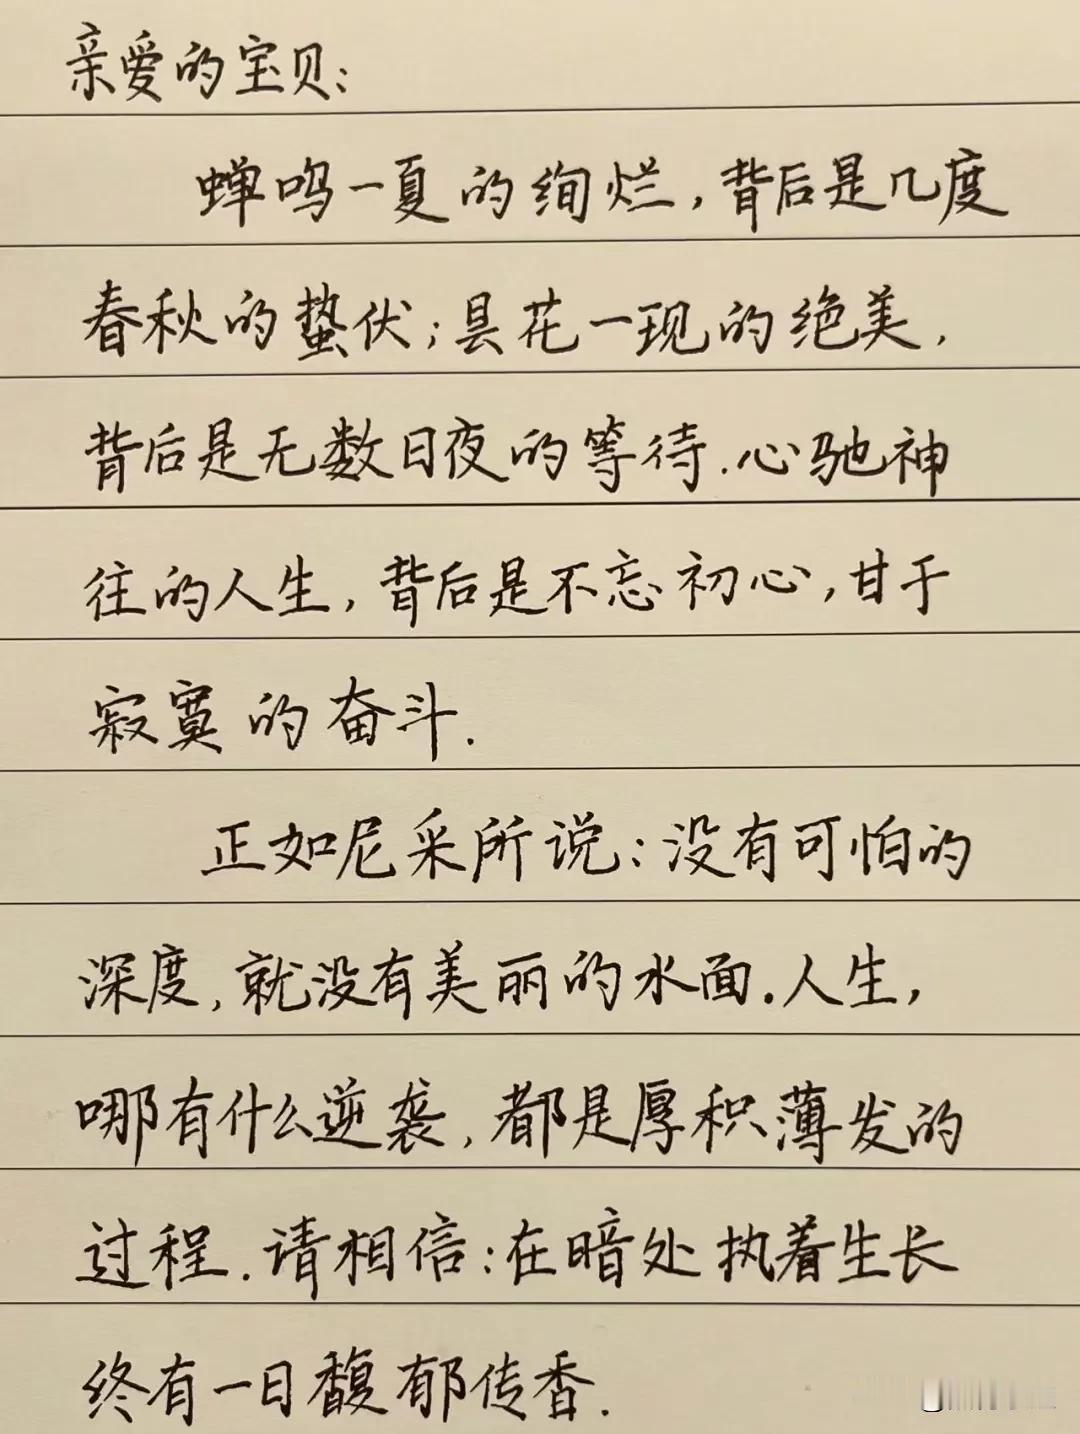 亲爱的宝贝：
蝉鸣一夏的绚烂，背后是几度
春秋的蛰伏；昙花一现的绝美，
背后是无数日夜的等待.心驰神
往的人生，背后是不忘初心，甘于
寂寞的奋斗.
正如尼采所说：没有可怕的
深度，就没有美丽的水面.人生，
哪有什么逆袭，都是厚积薄发的
过程.请相信：在暗处执着生长
终有一日馥郁传香.